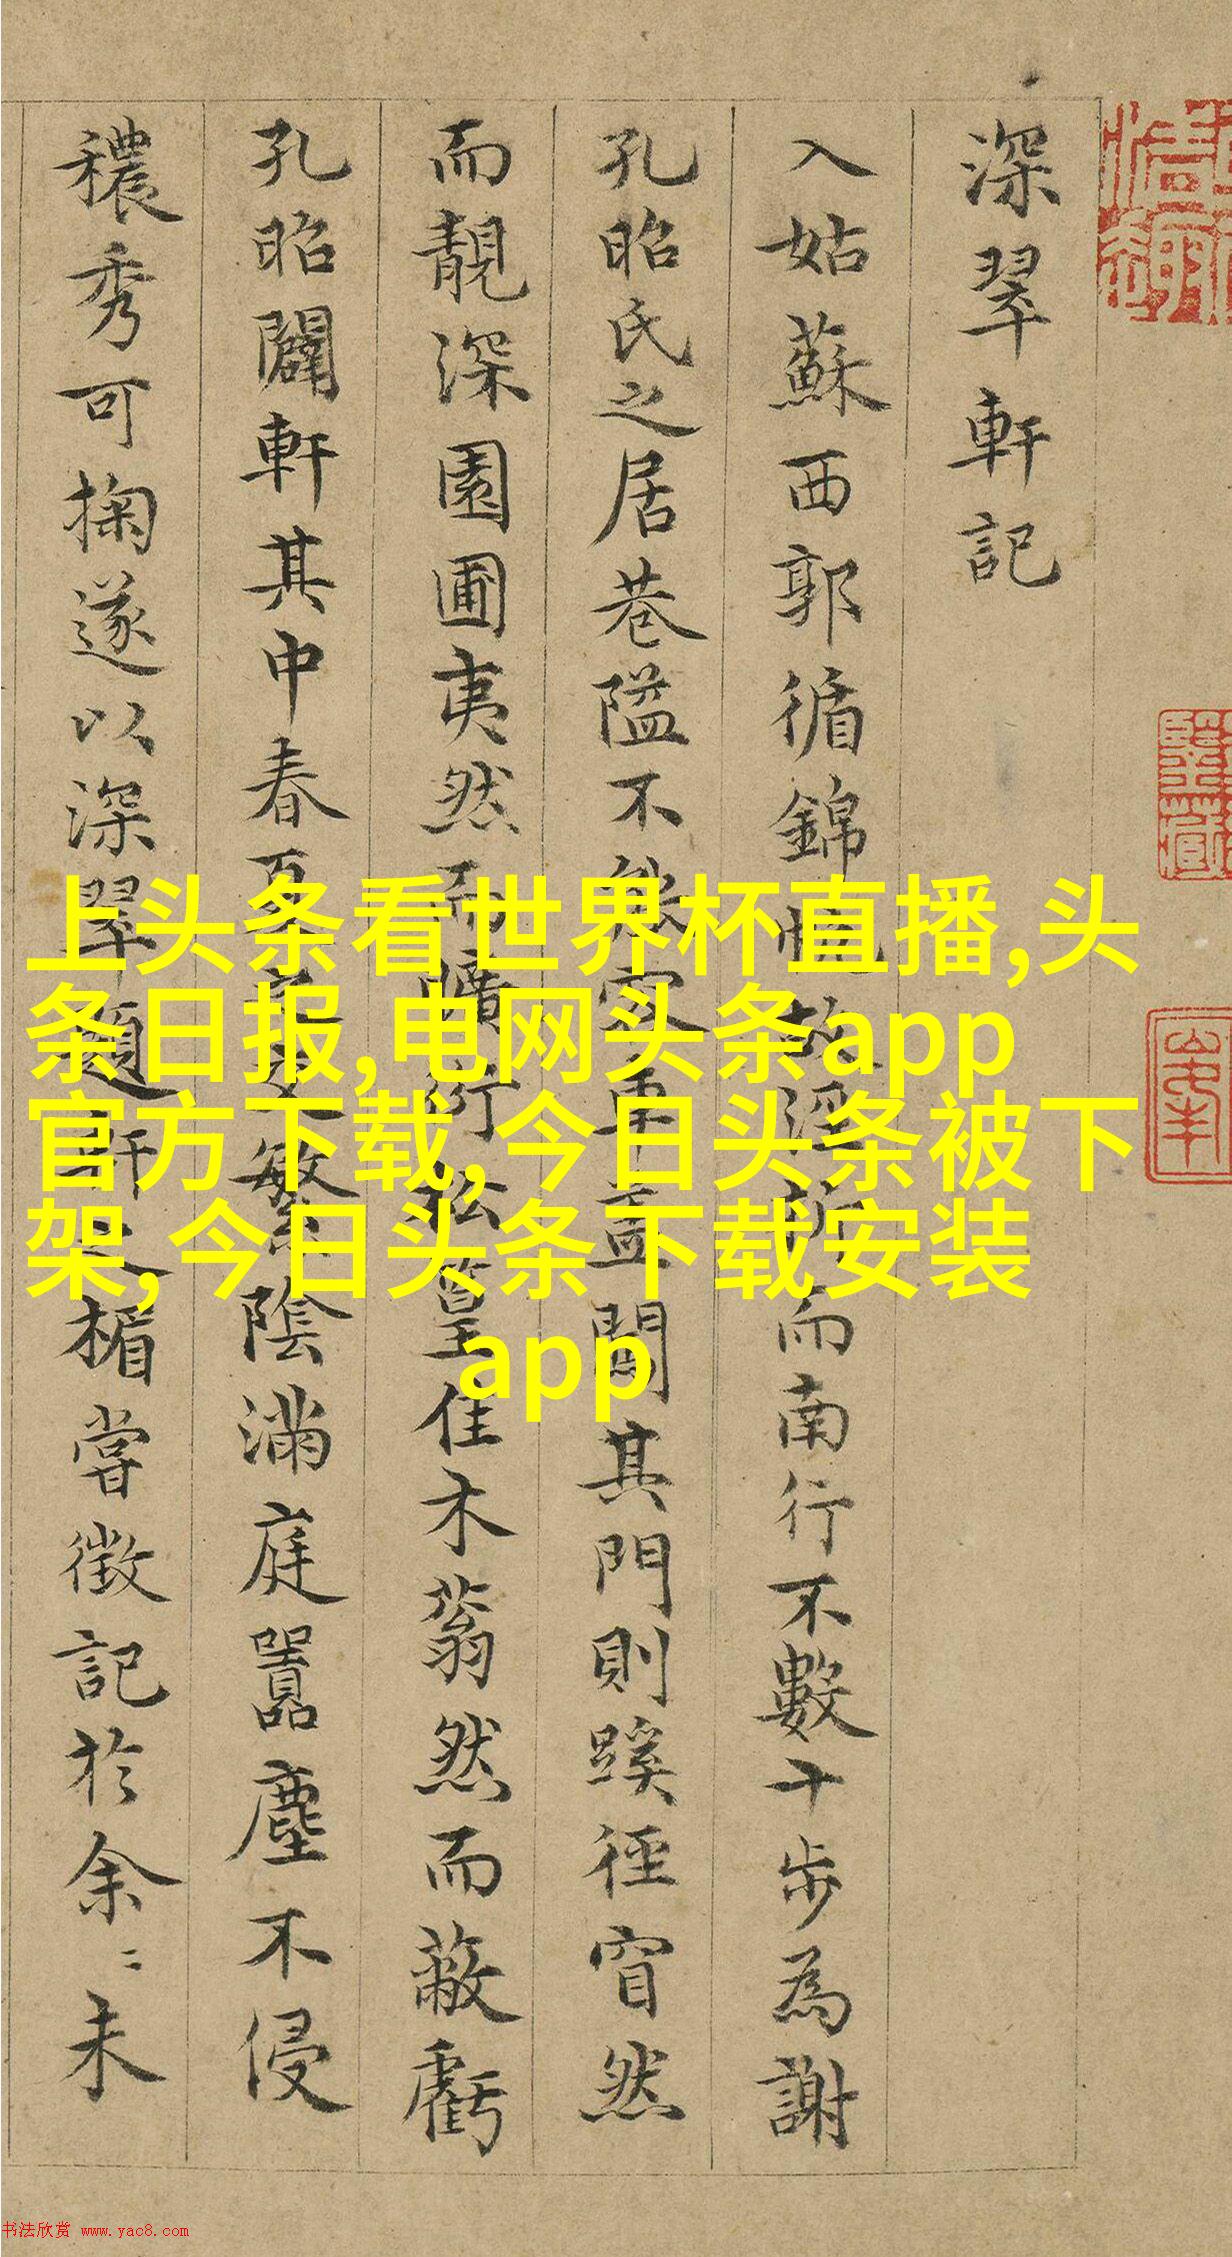 深翠軒記
入姑蘇西郭循錦帆故而南行不數十步為謝
孔昭氏之居巷隘不能容車蓋闢其門則蹊徑窅然
而靚深園圃夷然而曠衍松篁佳木蓊然而蔽虧
孔昭闢軒其中春夏之交繁陰滿庭囂塵不侵
穠秀可掬遂以深翠題軒之楣嘗徵記於余〻未
上头条看世界杯直播,头
条日报,电网头条app
官方下载,今日头条被下
架,今日头条下载安装
app
书法欣赏 www.yac8.com